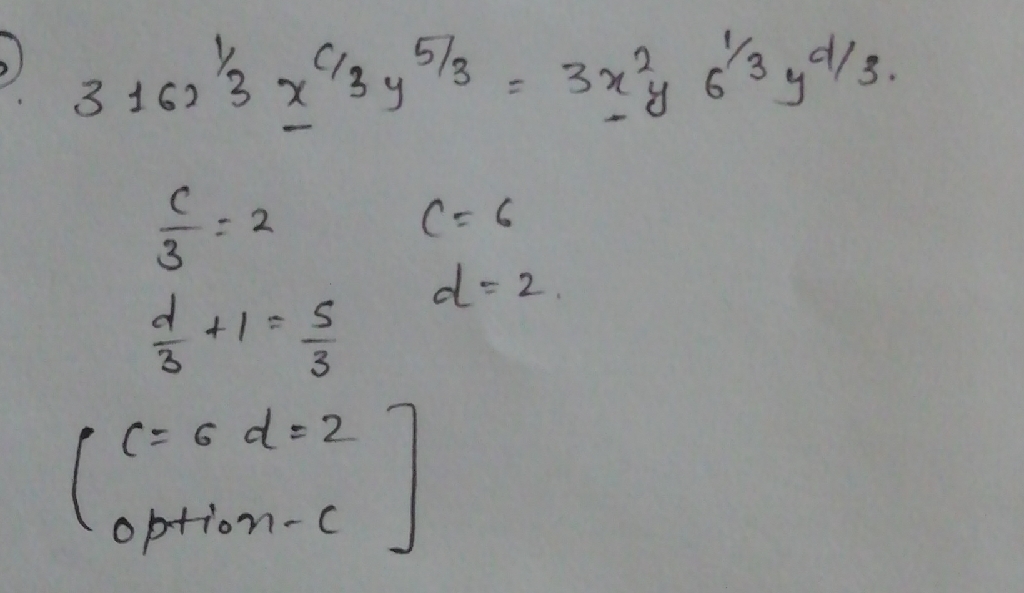 3 162^{1/3} x^{c/3} y^{5/3} = 3x^2y 6^{1/3} y^{d/3}.
c/3 = 2 c = 6
d/3 + 1 = 5/3 d = 2.
c = 6 d = 2
option - c